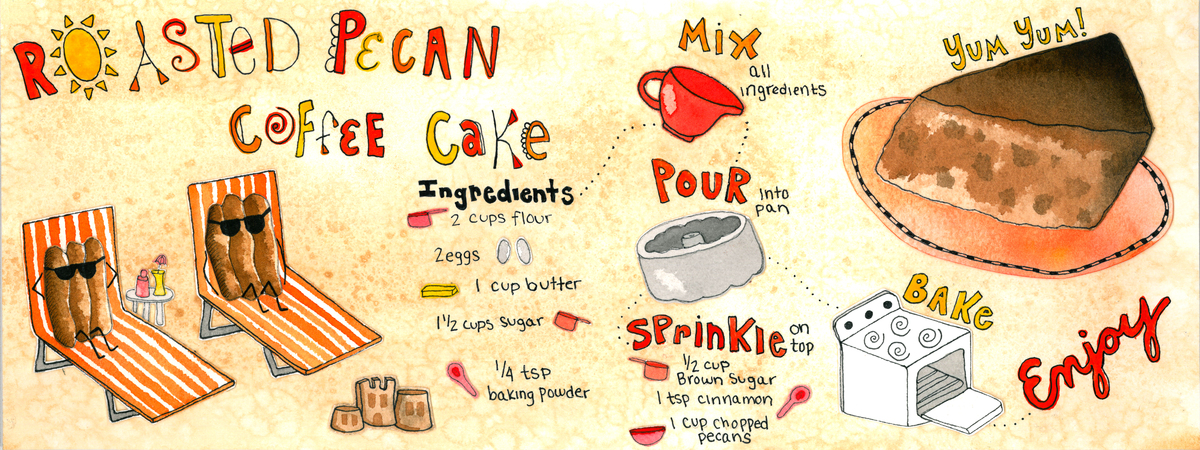 ROASTED PECAN
COFFEE CAKE
Ingredients
2 cups flour
2 eggs
1 cup butter
1 1/2 cups sugar
1/4 tsp
baking powder
Mix
all
ingredients
POUR
into
pan
SPrinKle
on
top
1/2 cup
Brown Sugar
1 tsp cinnamon
1 cup chopped
pecans
BAKe
YUM YUM!
Enjoy